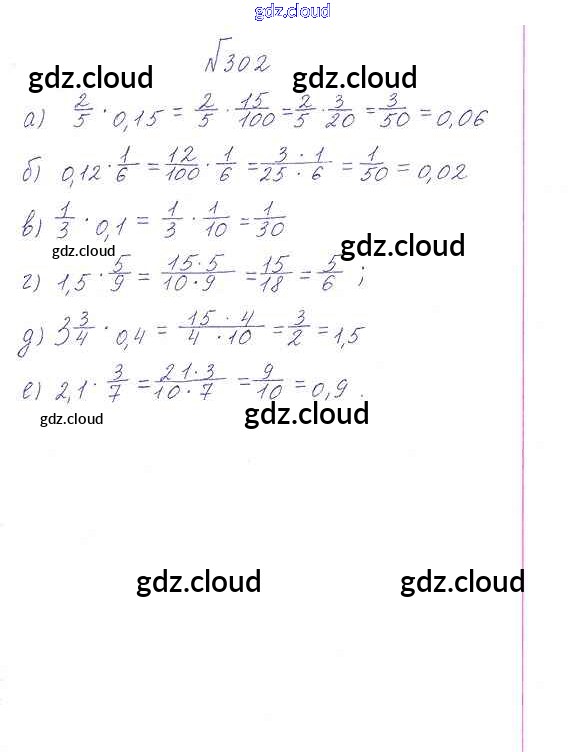 gdz.cloud
№302
gdz.cloud gdz.cloud
а) 2/5 · 0,15 = 2/5 · 15/100 = 2/5 · 3/20 = 3/50 = 0,06
б) 0,12 · 1/6 = 12/100 · 1/6 = 3 · 1/25 · 6 = 1/50 = 0,02
в) 1/3 · 0,1 = 1/3 · 1/10 = 1/30
gdz.cloud gdz.cloud
г) 1,5 · 5/9 = 15 · 5/10 · 9 = 15/18 = 5/6 ;
д) 3 3/4 · 0,4 = 15 · 4/4 · 10 = 3/2 = 1,5
е) 2,1 · 3/7 = 21 · 3/10 · 7 = 9/10 = 0,9 .
gdz.cloud gdz.cloud
gdz.cloud gdz.cloud